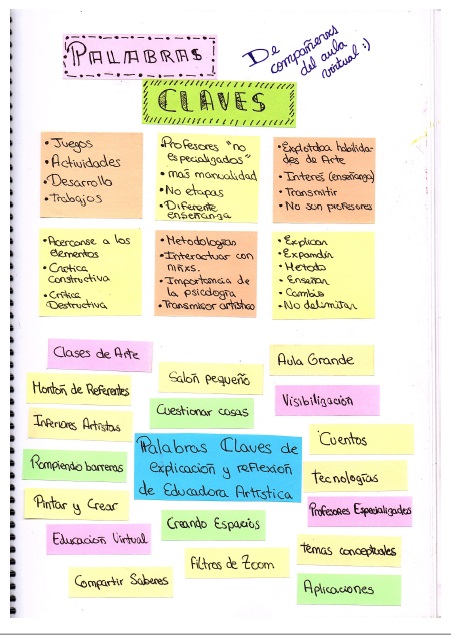 PALABRAS
De
compañerxs
del aula
virtual :)
CLAVES
• Juegos
• Actividades
• Desarrollo
• Trabajos
• Profesores "no
especializados"
• más manualidad
• No etapas
• Diferente
enseñanza
• Explotaba habilida-
des de Arte
• Interés (enseñanza)
• Transmitir
• No son profesores
• Acercarse a los
elementos
• Crítica
Constructiva
• Crítica
Destructiva
• Metodologías
• Interactuar con
niñxs.
• Importancia de
la psicología
• Transmisor artístico
• Explicar
• Expandir
• Método
• Enseñar
• Cambio
• No delimitar
Clases de Arte
Salón pequeño
Aula Grande
Montón de Referentes
Cuestionar cosas
Visibilización
Inferiores Artistas
Palabras Claves de
explicación y reflexión
de Educadora Artística
Cuentos
Rompiendo barreras
Tecnologías
Pintar y Crear
Creando Espacios
Profesores Especializados
Educación Virtual
Filtros de Zoom
Temas conceptuales
Compartir Saberes
Aplicaciones